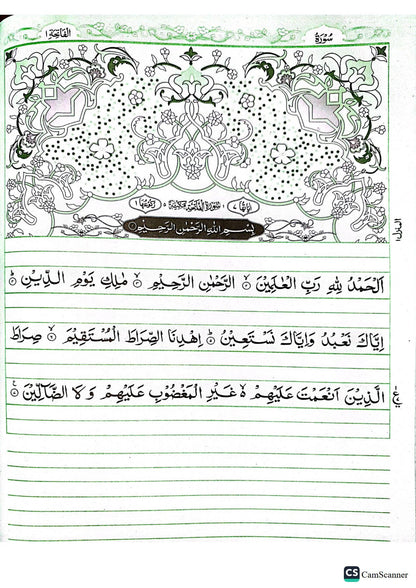 سُوْرَةُ
الفَاتِحَة ١
اٰيَاتُهَا ٧ سُوْرَةُ الْفَاتِحَةِ مَكِّيَّةٌ ٥ رُكُوْعُهَا ١
بِسْمِ اللهِ الرَّحْمٰنِ الرَّحِيْمِ
اَلْحَمْدُ لِلّٰهِ رَبِّ الْعٰلَمِيْنَ ۙ الرَّحْمٰنِ الرَّحِيْمِ ۙ مٰلِكِ يَوْمِ الدِّيْنِ ؕ
اِيَّاكَ نَعْبُدُ وَاِيَّاكَ نَسْتَعِيْنُ ؕ اِهْدِنَا الصِّرَاطَ الْمُسْتَقِيْمَ ۙ صِرَاطَ
الَّذِيْنَ اَنْعَمْتَ عَلَيْهِمْ ۙ غَيْرِ الْمَغْضُوْبِ عَلَيْهِمْ وَلَا الضَّآلِّيْنَ
ع
CS CamScanner